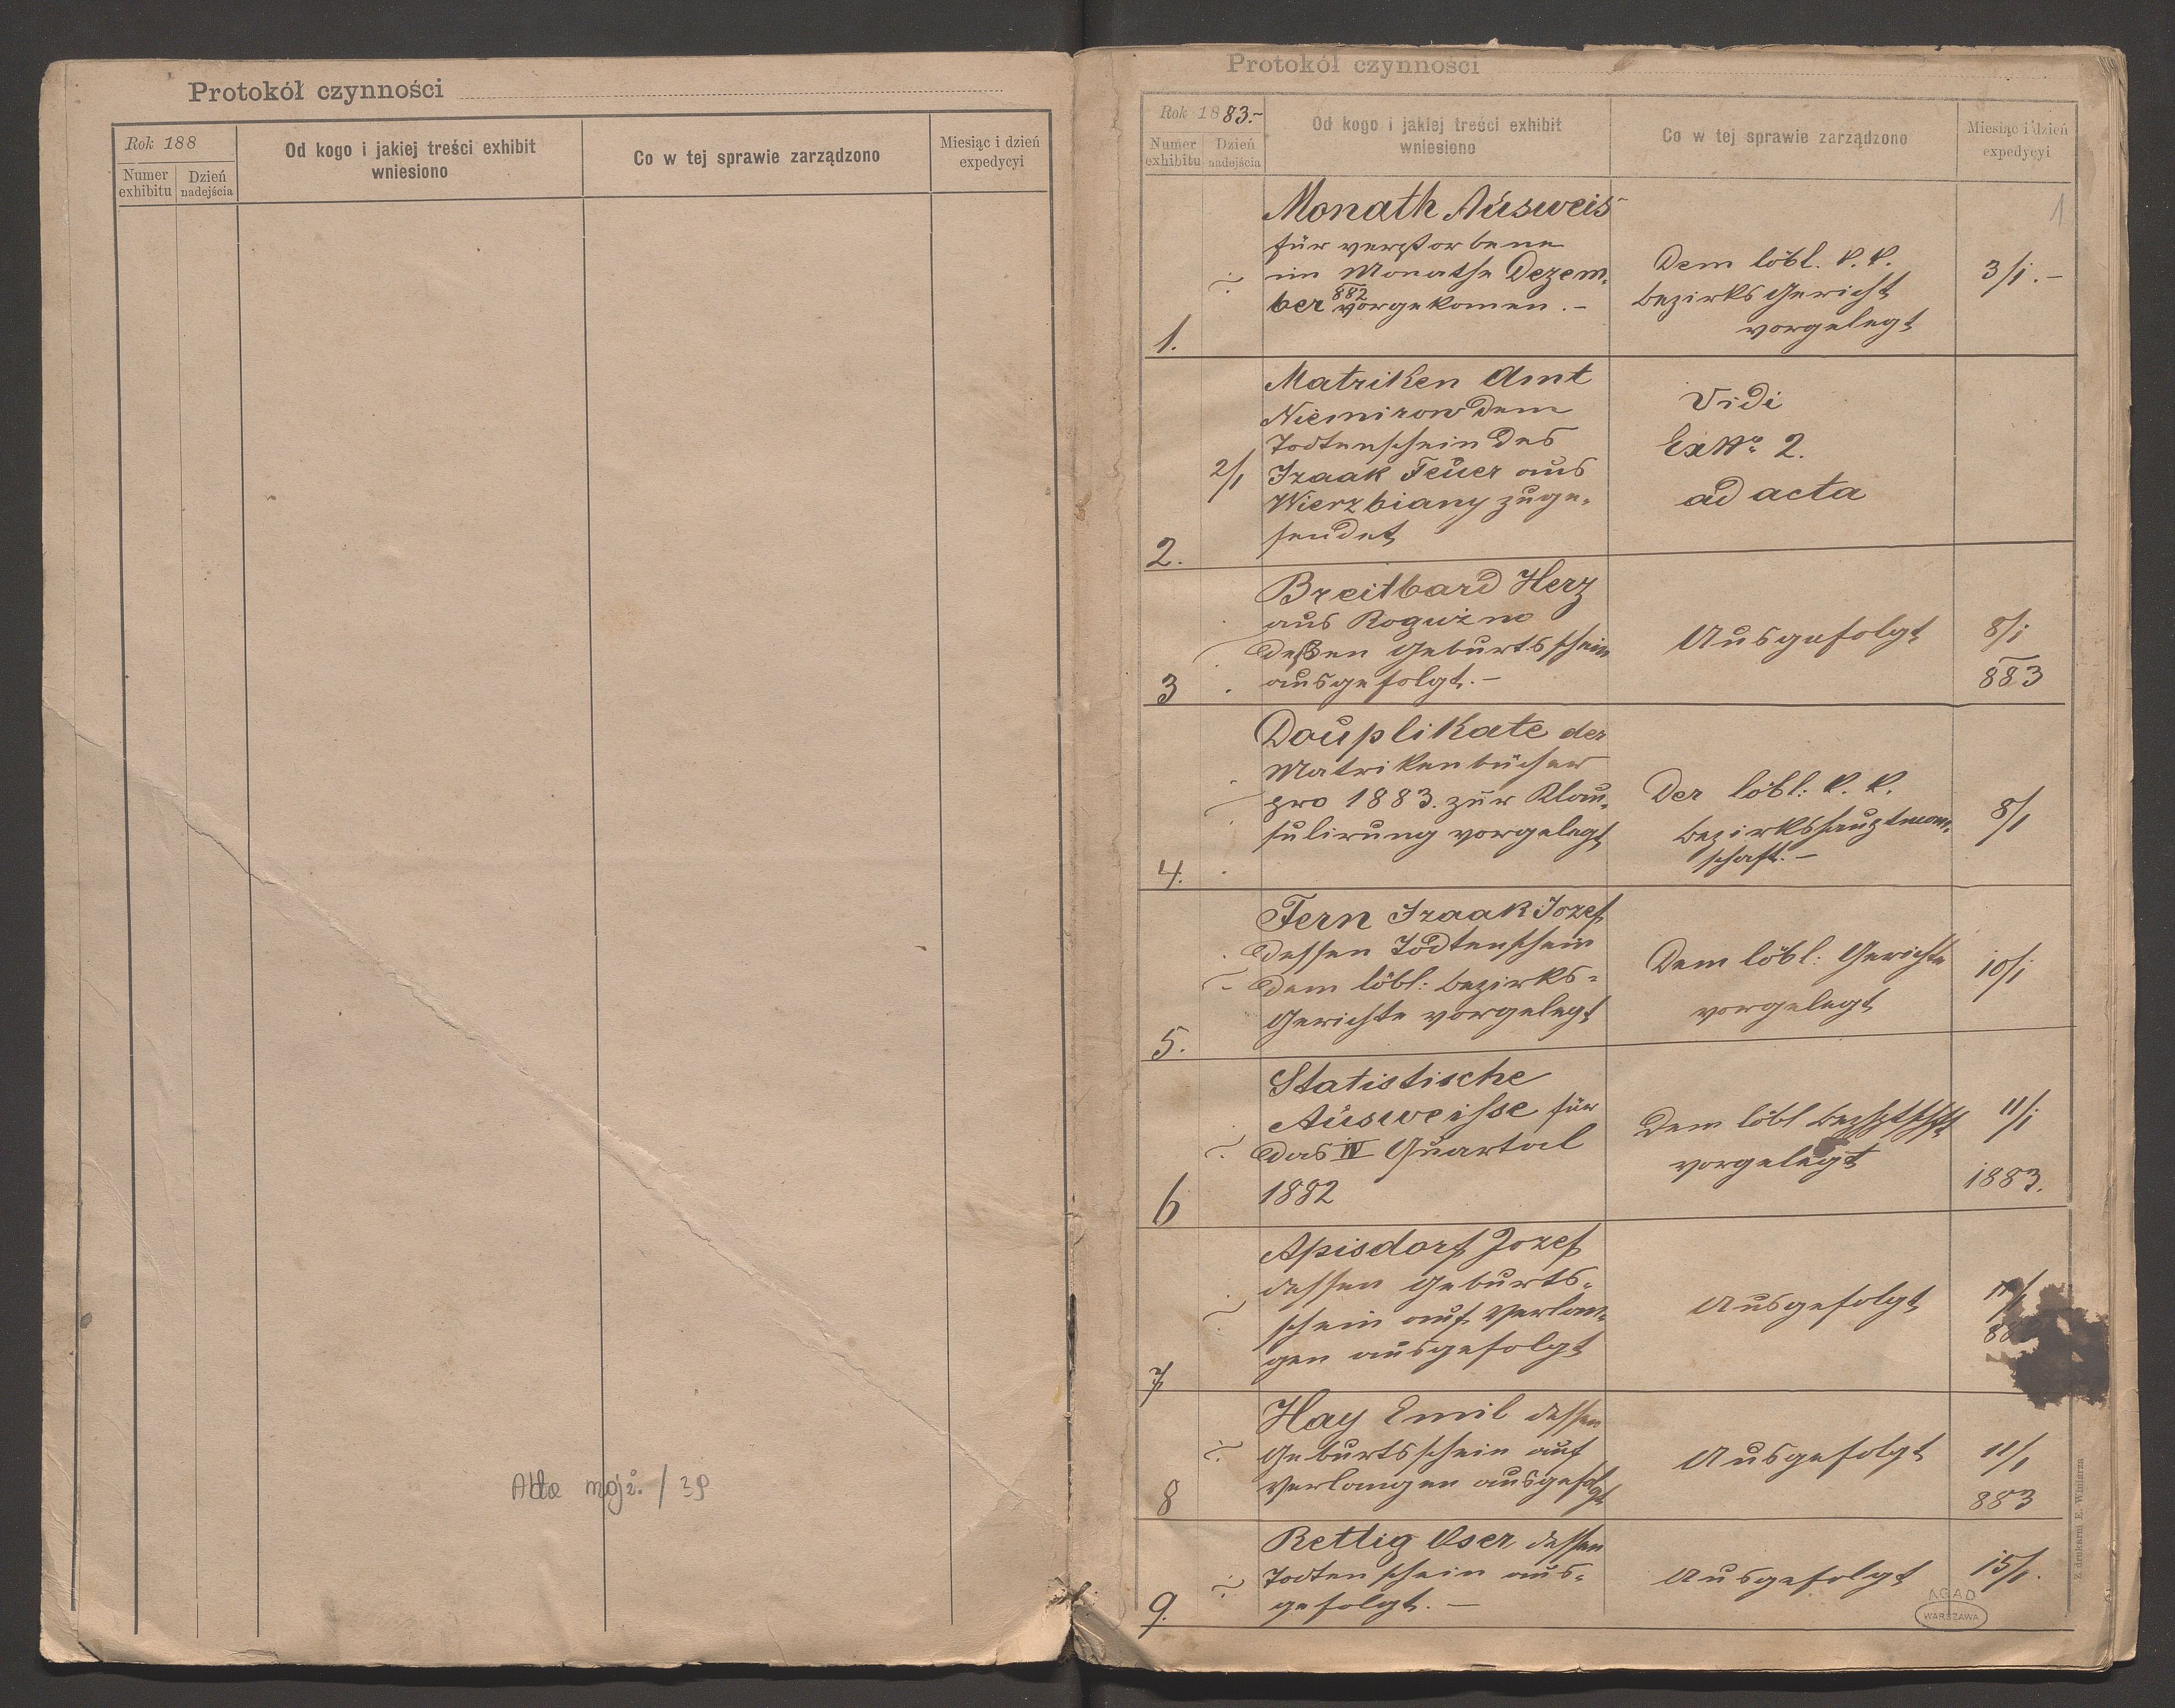 Protokół czynności
Rok 188
Numer exhibitu
Dzień nadejścia
Od kogo i jakiej treści exhibit
wniesiono
Co w tej sprawie zarządzono
Miesiąc i dzień
expedycyi
Protokół czynności
Rok 1883.-
Numer exhibitu
Dzień nadejścia
Od kogo i jakiej treści exhibit
wniesiono
Co w tej sprawie zarządzono
Miesiąc i dzień
expedycyi
1
1.
Monath Ausweis
für verstorbene
im Monathe Dezem-
ber 882 vorgekomen.-
Dem löbl. k. k.
Bezirks Gericht
vorgelegt
3/1.-
2.
2/1
Matriken Amt
Niemirow dem
Todtenschein des
Izaak Feuer aus
Wierzbiany zuge-
sendet
Vidi
Ex No 2.
ad acta
3
Breitbard Herz
aus Roguźno
deßen Geburtsschein
ausgefolgt.-
Ausgefolgt
8/1
883
4.
Douplikate der
Matrikenbücher
pro 1883. zur Klau-
sulirung vorgelegt
Der löbl: k. k.
Bezirkshauptmann-
schaft.-
8/1
5.
Fern Izaak Jozef
dessen Todtenschein
dem löbl: Bezirks-
Gerichte vorgelegt
Dem löbl: Gerichte
vorgelegt
10/1
6
Statistische
Ausweisse für
das IV Quartal
1882
Dem löbl
vorgelegt
11/1
1883.
7
Apisdorf Jozef
dessen Geburts-
schein auf Verlan-
gen ausgefolgt
Ausgefolgt
8
Hay Emil dessen
Geburtsschein auf
Verlangen ausgefolgt
Ausgefolgt
11/1
883
9.
Rettig Oser dessen
Todtenschein aus-
gefolgt.-
Ausgefolgt
15/1.
Z drukarni E. Winiarza
AGAD
WARSZAWA